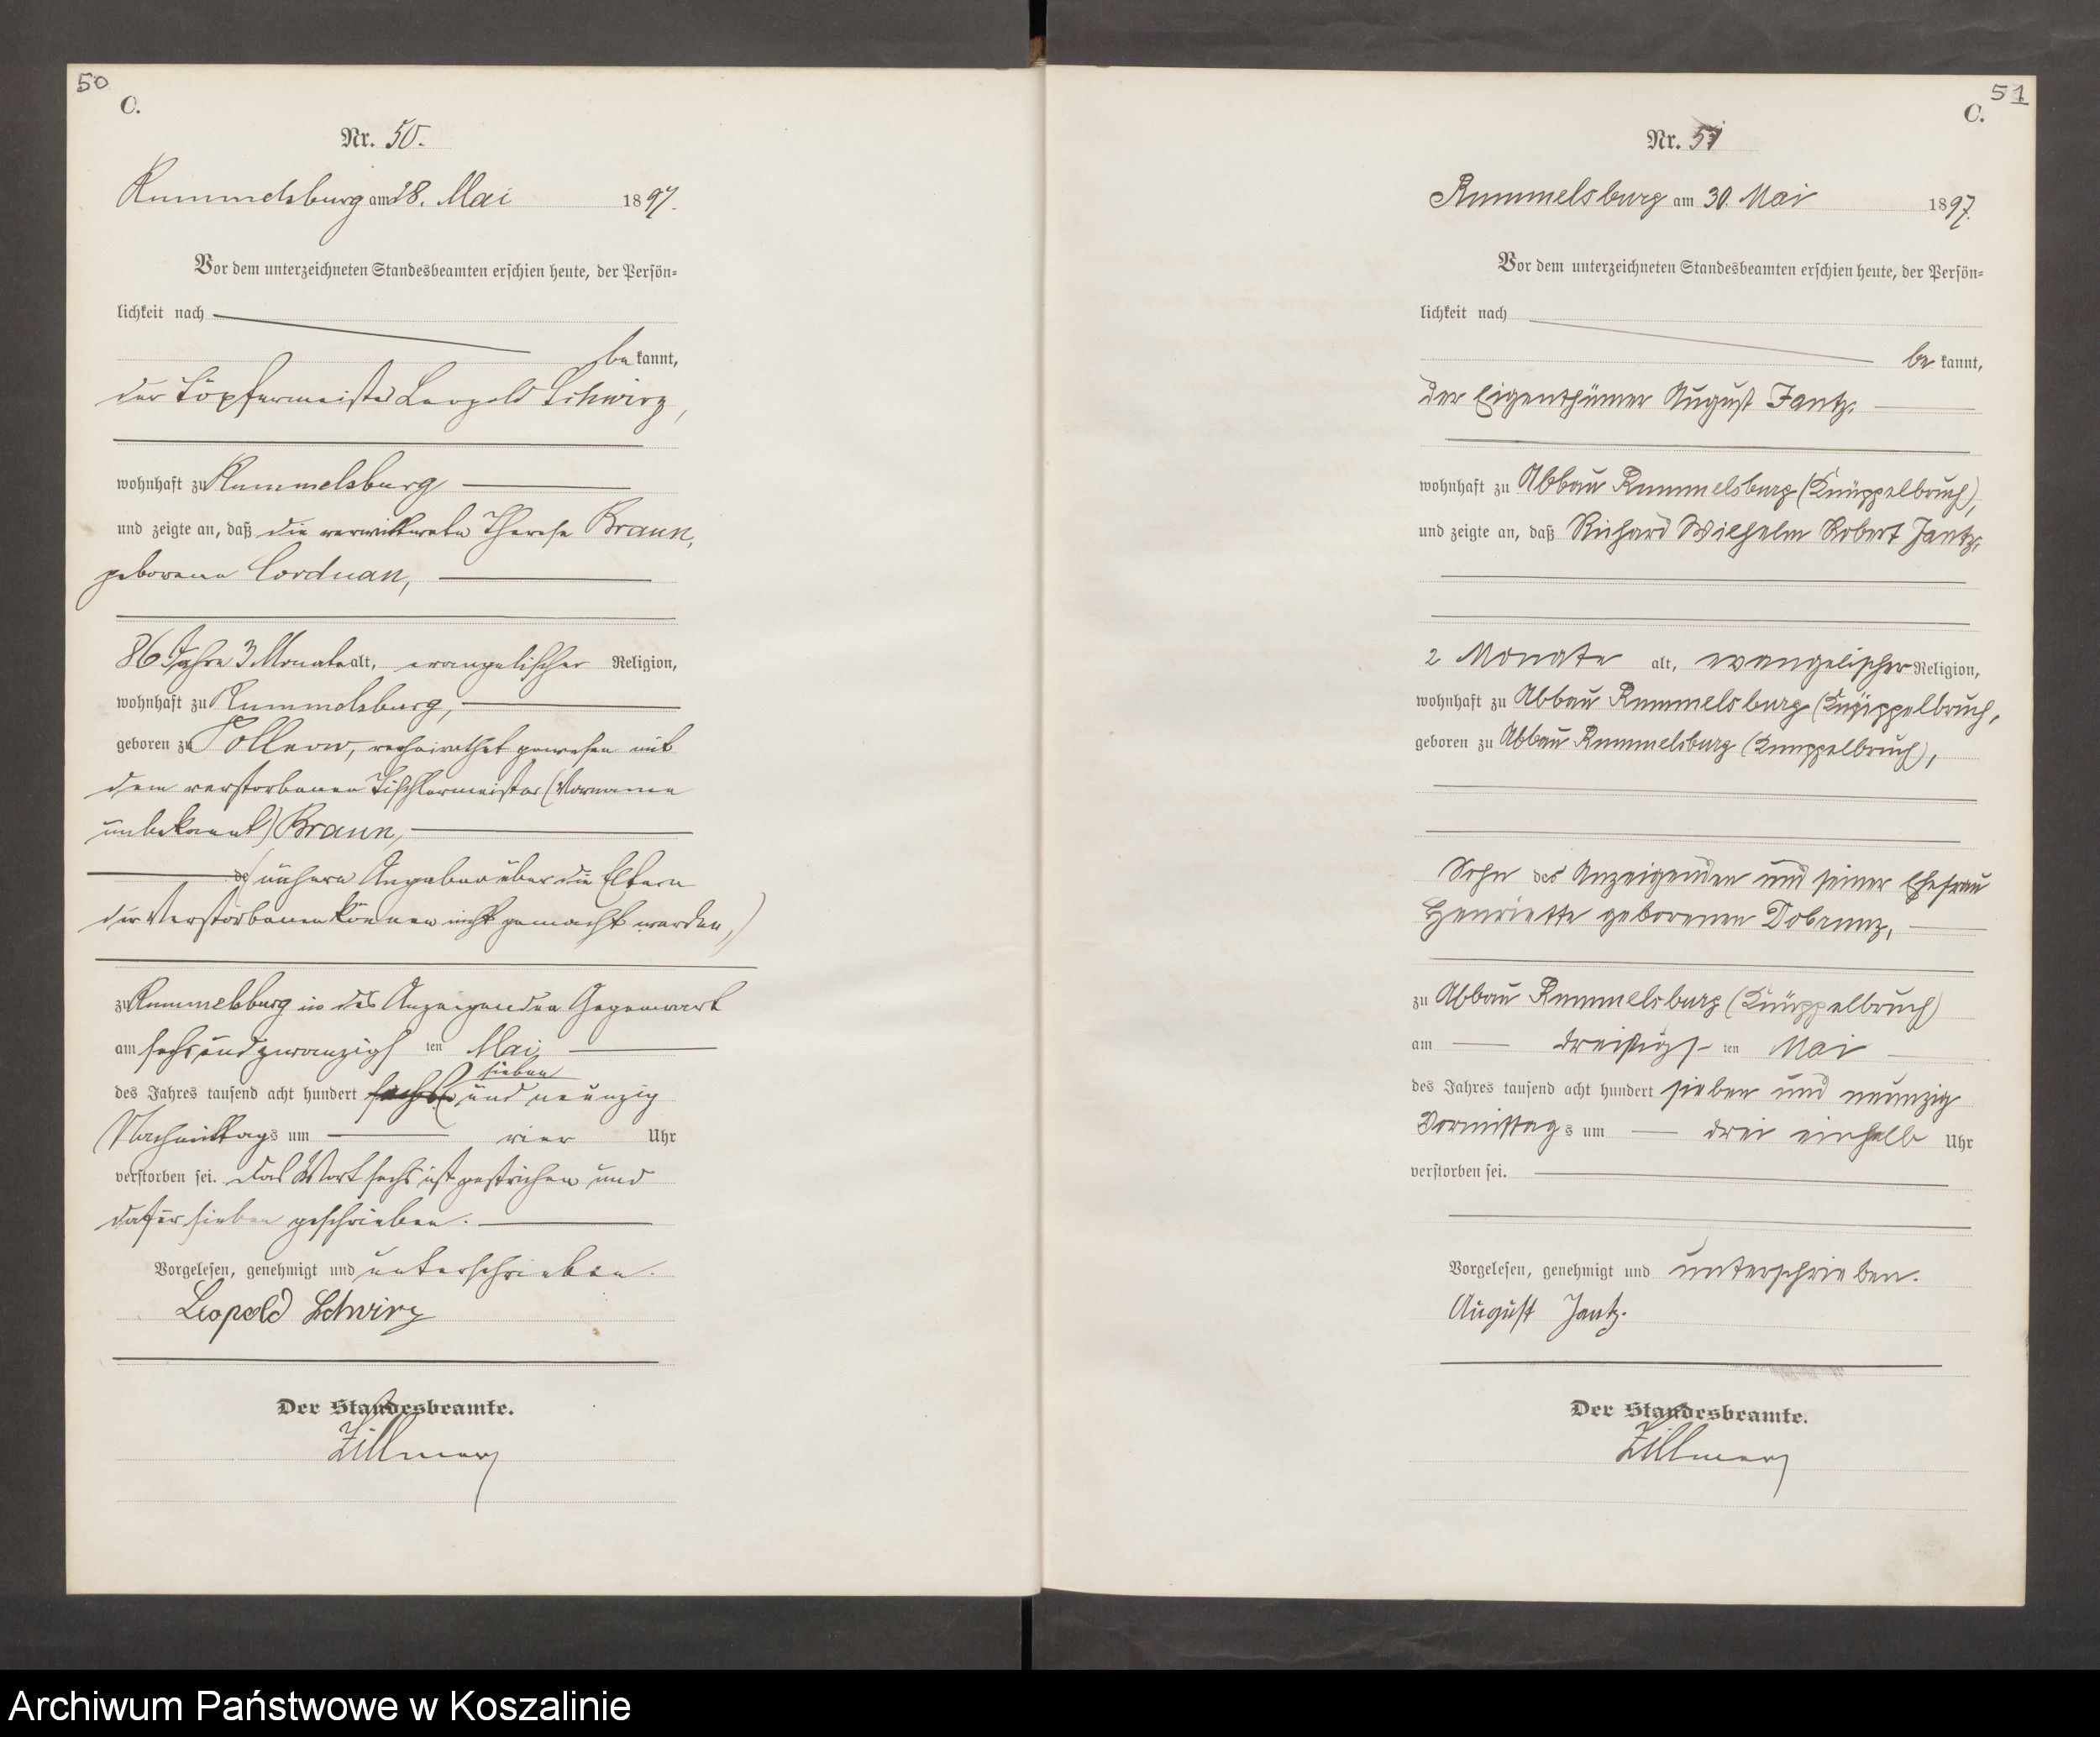 50
C.
Nr. 50.
Rummelsburg am 28. Mai 1897.
Vor dem unterzeichneten Standesbeamten erschien heute, der Persön-
lichkeit nach
bekannt,
der Töpfermeister Leopold Schwirz,
wohnhaft zu Rummelsburg
und zeigte an, daß die verwittwete Therese Braun,
geborene Corduan,
86 Jahre 3 Monate alt, evangelischer Religion,
wohnhaft zu Rummelsburg,
geboren zu Pollnow, verheirathet gewesen mit
dem verstorbenen Tischlermeister (Vorname
unbekannt) Braun,
(nähere Angaben über die Eltern
der Verstorbenen können nicht gemacht werden,)
zu Rummelsburg in des Anzeigenden Gegenwart
am sechsundzwanzigsten Mai
sieben
des Jahres tausend acht hundert sechs und neunzig
Nachmittags um vier Uhr
verstorben sei. Das Wort sechs ist gestrichen und
dafür sieben geschrieben.
Vorgelesen, genehmigt und unterschrieben.
Leopold Schwirz
Der Standesbeamte.
Zillmer
51
C.
Nr. 51
Rummelsburg am 30. Mai 1897.
Vor dem unterzeichneten Standesbeamten erschien heute, der Persön-
lichkeit nach
bekannt,
der Eigenthümer August Jantz.
wohnhaft zu Abbau Rummelsburg (Knüppelbruch),
und zeigte an, daß Richard Wilhelm Robert Jantz,
2 Monate alt, evangelischer Religion,
wohnhaft zu Abbau Rummelsburg (Knüppelbruch,
geboren zu Abbau Rummelsburg (Knüppelbruch),
Sohn des Anzeigenden und seiner Ehefrau
Henriette geborenen Dobrunz,
zu Abbau Rummelsburg (Knüppelbruch)
am dreißigsten Mai
des Jahres tausend acht hundert sieben und neunzig
Vormittags um drei einhalb Uhr
verstorben sei.
Vorgelesen, genehmigt und unterschrieben.
August Jantz.
Der Standesbeamte.
Zillmer
Archiwum Państwowe w Koszalinie